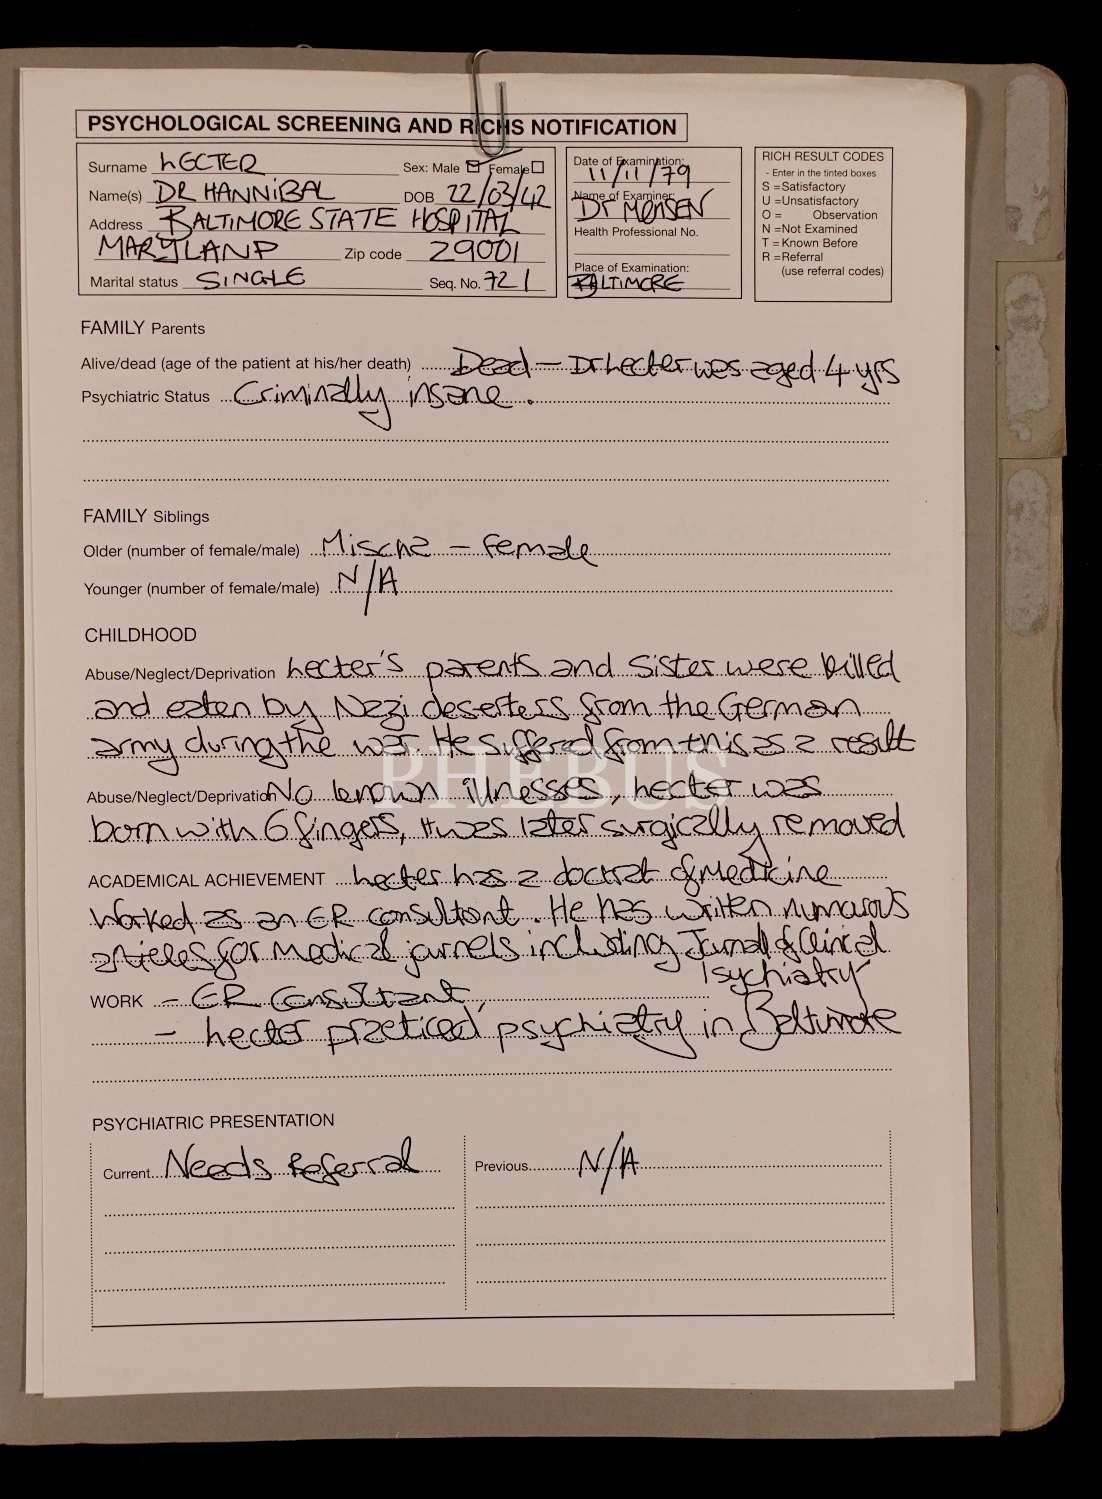 PSYCHOLOGICAL SCREENING AND RICHS NOTIFICATION
Surname LECTER Sex: Male Female
Name(s) DR HANNIBAL DOB 22/03/42
Address BALTIMORE STATE HOSPITAL
MARYLAND Zip code 29001
Marital status SINGLE Seq. No. 721
Date of Examination:
11/11/79
Name of Examiner:
Dr MENSEN
Health Professional No.
Place of Examination:
BALTIMORE
RICH RESULT CODES
- Enter in the tinted boxes
S =Satisfactory
U =Unsatisfactory
O = Observation
N =Not Examined
T =Known Before
R =Referral
(use referral codes)
FAMILY Parents
Alive/dead (age of the patient at his/her death) Dead – Dr Lecter was aged 4 yrs
Psychiatric Status Criminally insane.
FAMILY Siblings
Older (number of female/male) Mischa – Female
Younger (number of female/male) N/A
CHILDHOOD
Abuse/Neglect/Deprivation Lecter's parents and sister were killed
and eaten by Nazi deserters from the German
army during the war. He suffered from this as a result
PHEBUS
Abuse/Neglect/Deprivation No known illnesses, Lecter was
born with 6 fingers, it was later surgically removed
ACADEMICAL ACHIEVEMENT Lecter has a doctrat of Medicine
Worked as an ER consultant. He has written numarous
articles for medical jurnels including Jurnal of Clinical
Psychiatry
WORK – ER Consultant,
– Lecter practiced psychiatry in Baltimore
PSYCHIATRIC PRESENTATION
Current Needs Referral
Previous N/A